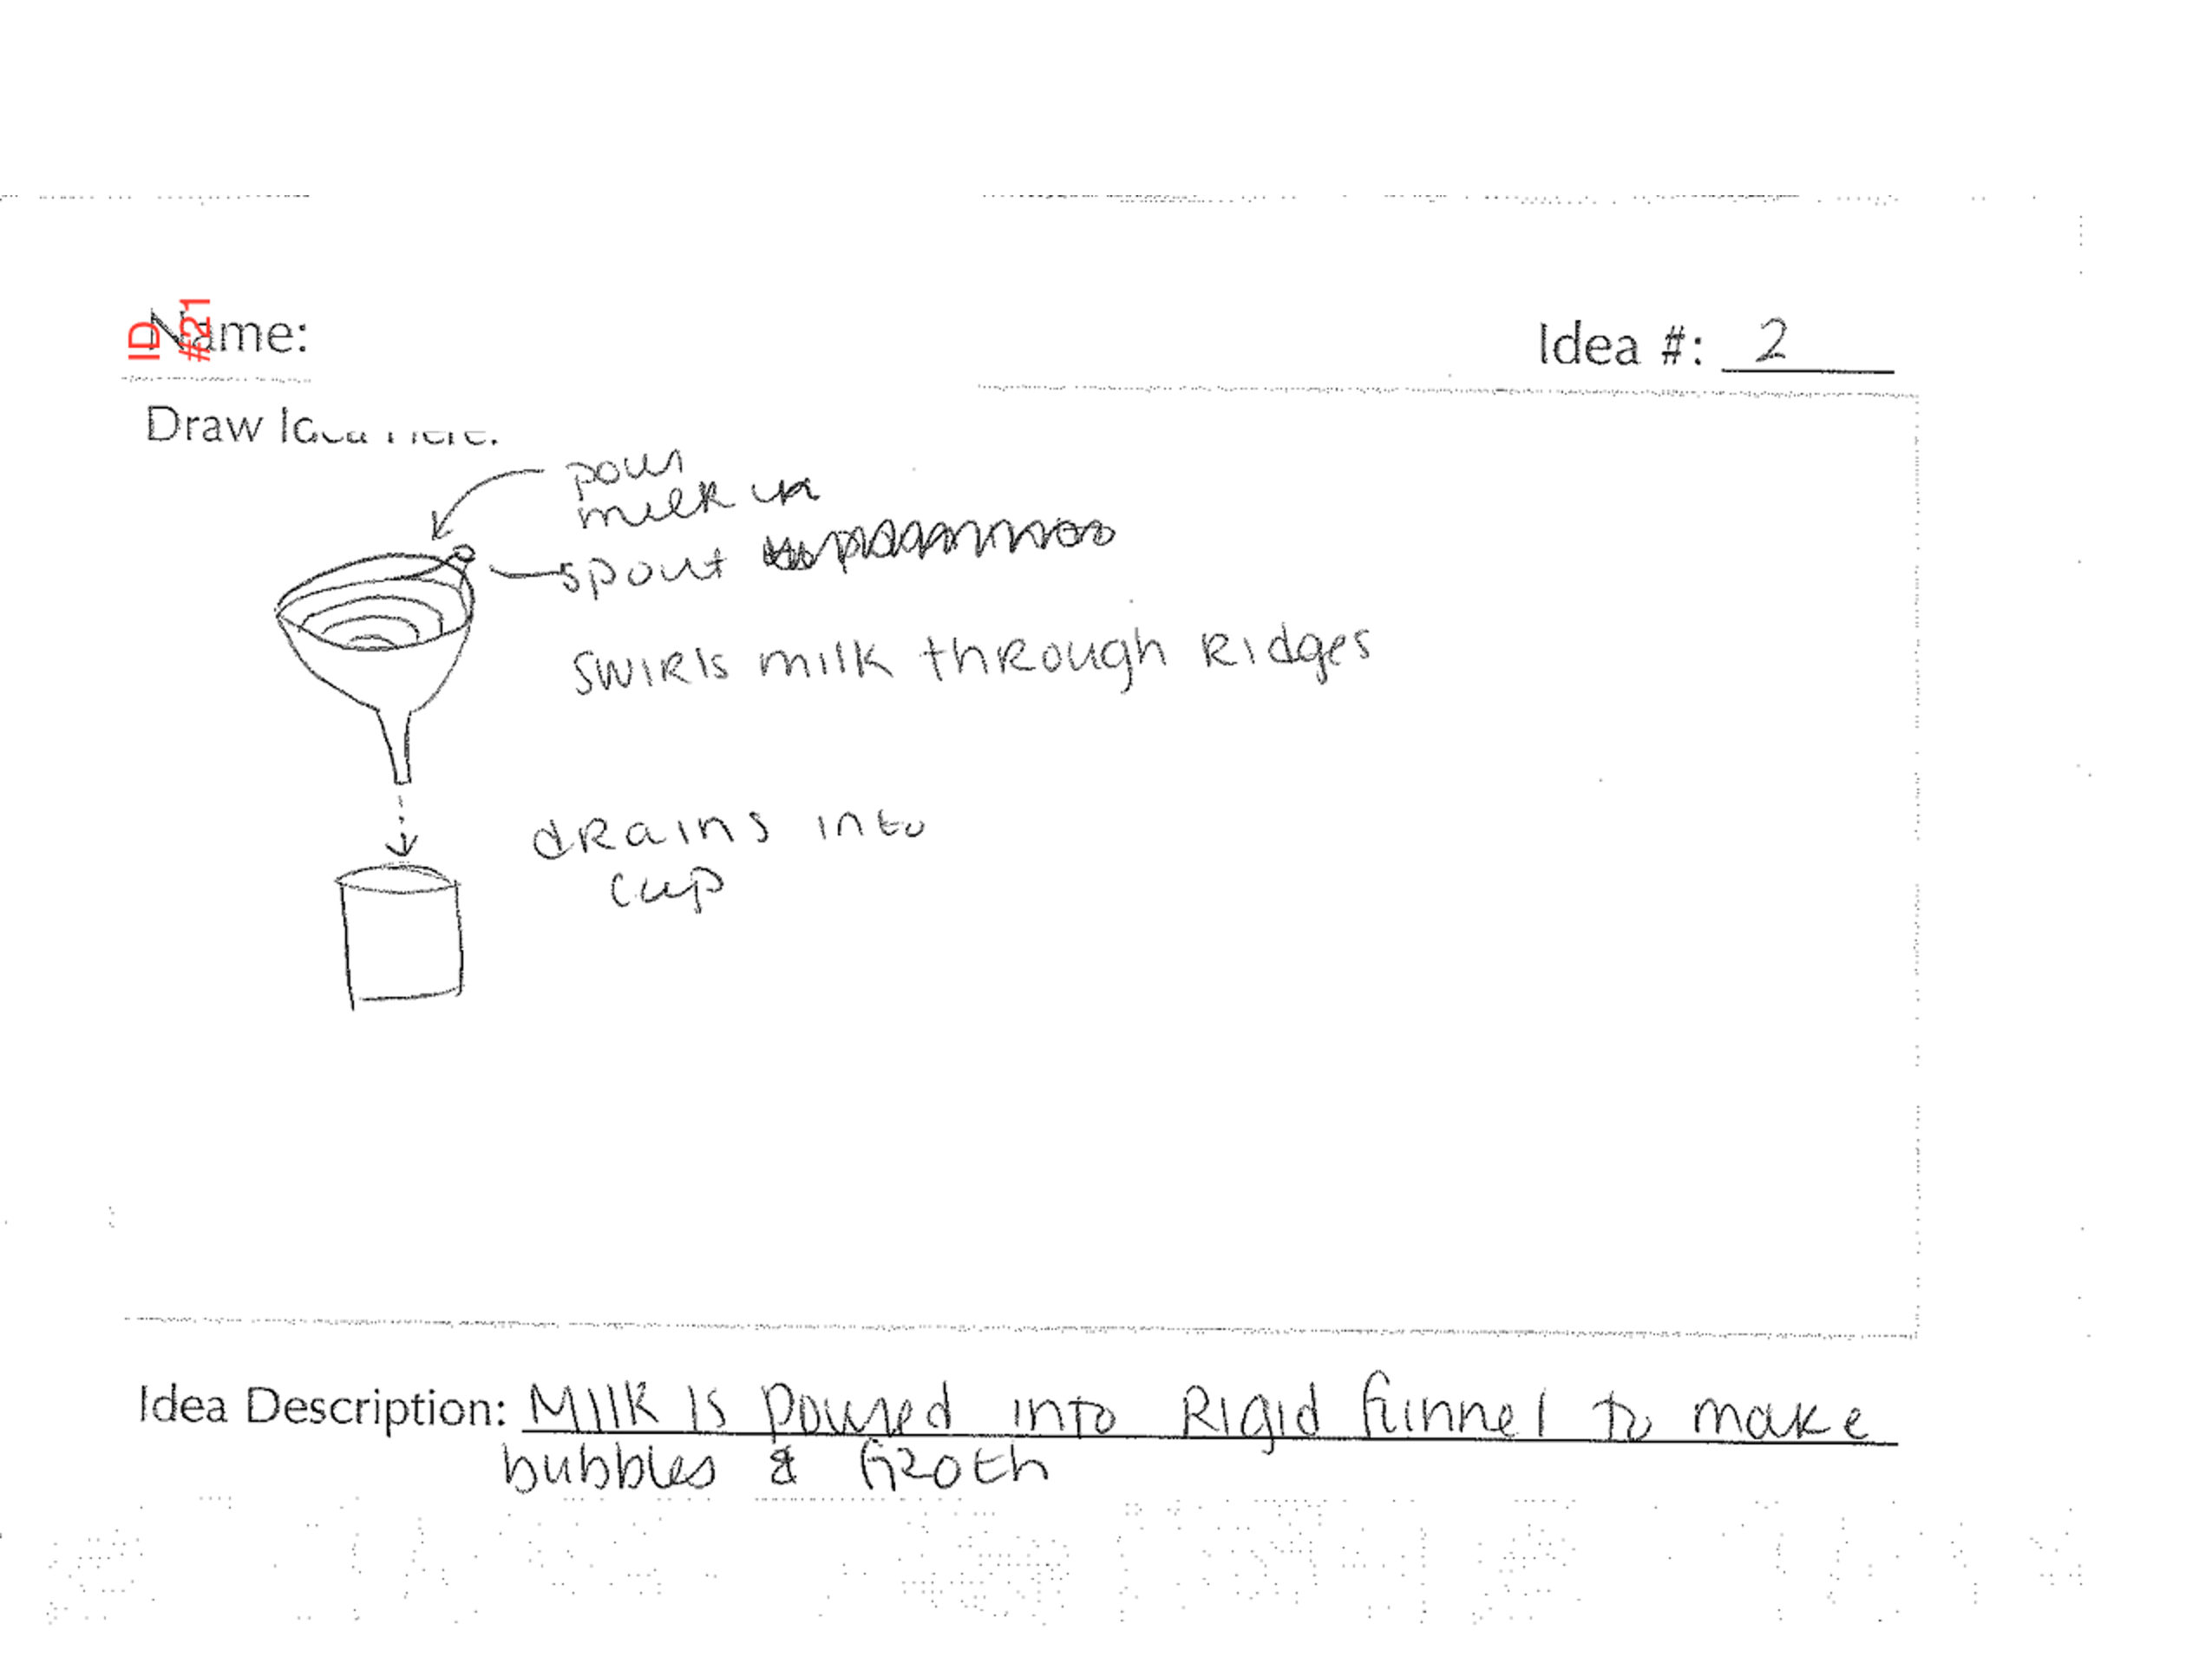 ID
#21
Name:
Idea #: 2
Draw Idea Here:
pour
milk in
spout
swirls milk through ridges
drains into
cup
Idea Description: Milk is poured into Rigid funnel to make
bubbles & froth